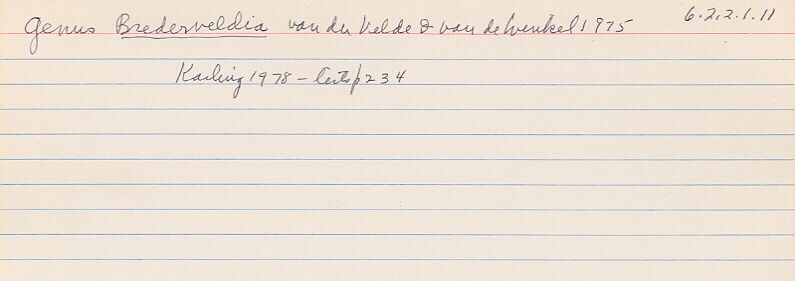 Genus Brederveldia van der Velde & van de Winkel 1975 6.2.2.1.11
Karling 1978 - lists p 234